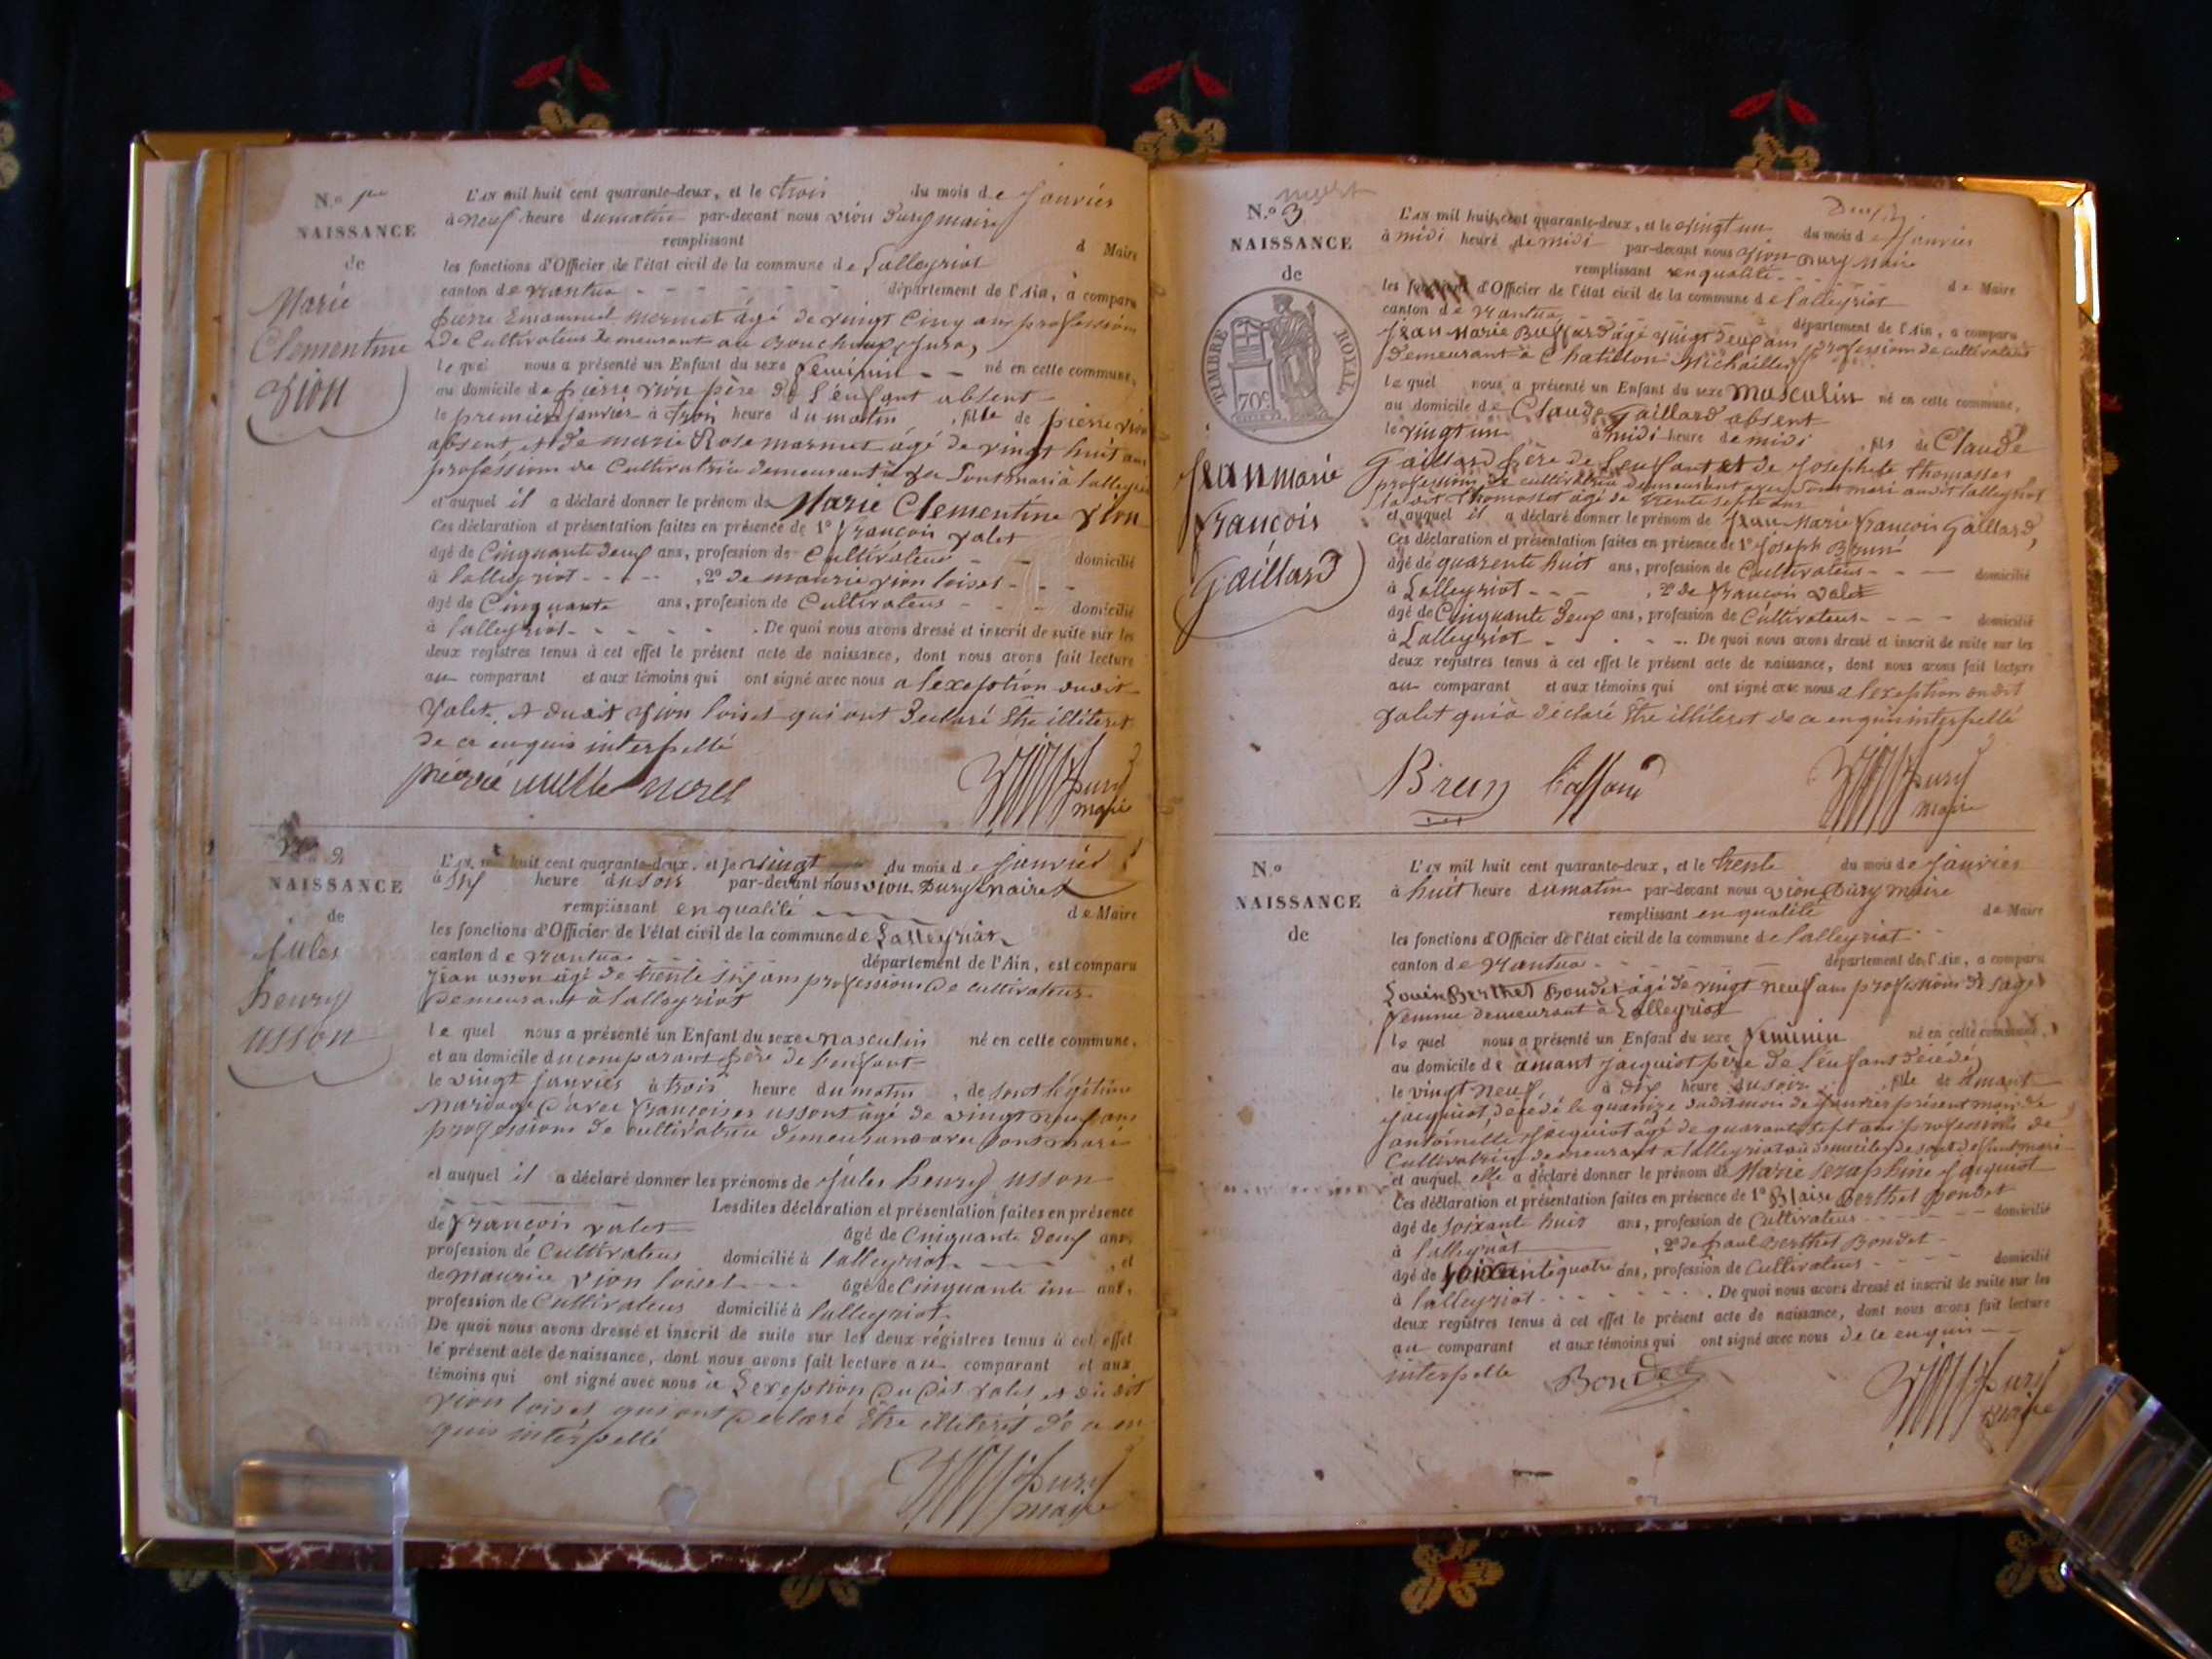 N.o 1er
NAISSANCE
de
Marie
Clementine
Vion
L'AN mil huit cent quarante-deux, et le trois du mois de Janvier
à neuf heure du matin par-devant nous Vion Dury maire
remplissant d Maire
les fonctions d'Officier de l'état civil de la commune de Lalleyriat
canton de Nantua département de l'Ain, a comparu
pierre Emanuel mermet âgé de vingt Cinq ans profession
de Cultivateur demeurant au Bouchoux, Jura,
le quel nous a présenté un Enfant du sexe feminin né en cette commune,
au domicile de pierre Vion père de L'enfant absent
le premier Janvier à trois heure du matin , fille de pierre Vion
absent, et de marie Rose mermet âgé de vingt huit ans
profession de Cultivatrice demeurant Sont mari à lalleyriat
et auquel il a déclaré donner le prénom de Marie Clementine Vion
Ces déclaration et présentation faites en présence de 1o francois valet
âgé de Cinquante deux ans, profession de Cultivateur domicilié
à lalleyriat , 2o de maurice vion loiset
âgé de Cinquante ans, profession de Cultivateur domicilié
à lalleyriat . De quoi nous avons dressé et inscrit de suite sur les
deux registres tenus à cet effet le présent acte de naissance, dont nous avons fait lecture
au comparant et aux témoins qui ont signé avec nous a lexception dudit
Valet et dudit Vion loiset qui ont declaré Être illiteret
de ce enquis interpellé
Dury
maire
N.o 2
NAISSANCE
de
Jules
henry
usson
L'AN mil huit cent quarante-deux, et le vingt du mois de Janvier
à six heure du soir par-devant nous Vion Dury maire
remplissant en qualité de Maire
les fonctions d'Officier de l'état civil de la commune de Lalleyriat
canton de Nantua département de l'Ain, est comparu
Jean usson âgé de trente six ans profession de cultivateur
demeurant à lalleyriat
le quel nous a présenté un Enfant du sexe masculin né en cette commune,
et au domicile du comparant père de l'enfant
le vingt janvier à trois heure du matin , de sont légitime
mariage d'avec françoise ussont âgé de vingt neuf ans
profession de cultivatrice demeurant avec sont mari
et auquel il a déclaré donner les prénoms de Jules henry usson
Lesdites déclaration et présentation faites en présence
de françois valet âgé de Cinquante deux ans,
profession de Cultivateur domicilié à lalleyriat , et
de maurice vion loiset âgé de Cinquante un ans,
profession de Cultivateur domicilié à lalleyriat
De quoi nous avons dressé et inscrit de suite sur les deux régistres tenus à cet effet
le présent acte de naissance, dont nous avons fait lecture au comparant et aux
témoins qui ont signé avec nous à Lexception du dit valet et du dit
vion loiset qui ont declaré Être illiteret de ce en
quis interpellé
Dury
maire
N.o 3
NAISSANCE
de
TIMBRE ROYAL
70c
Jean marie
françois
Gaillard
L'AN mil huit cent quarante-deux, et le vingt un du mois de Janvier
à midi heure de midi par-devant nous Vion Dury Maire
remplissant en qualité de Maire
les fonctions d'Officier de l'état civil de la commune de lalleyriat
canton de Nantua département de l'Ain, a comparu
Jean Marie Buffard âgé vingt deux ans profession de cultivateur
demeurant à Chatillon Michaille
le quel nous a présenté un Enfant du sexe masculin né en cette commune,
au domicile de Claude Gaillard absent
le vingt un à midi heure de midi , fils de Claude
Gaillard père de L'enfant et de Josephete Thomasset
profession de cultivatrice demeurant avec Sont mari audit lalleyriat
ladite Thomasset âgé de trente sept ans
et auquel il a déclaré donner le prénom de Jean Marie françois Gaillard,
Ces déclaration et présentation faites en présence de 1o Joseph Brun
âgé de quarente huit ans, profession de Cultivateur domicilié
à Lalleyriat , 2o de francois Valet
âgé de Cinquante deux ans, profession de Cultivateur domicilié
à Lalleyriat . De quoi nous avons dressé et inscrit de suite sur les
deux registres tenus à cet effet le présent acte de naissance, dont nous avons fait lecture
au comparant et aux témoins qui ont signé avec nous a lexception dudit
valet qui à déclaré Être illiteret de ce enquis interpellé
Brun
Dury
maire
N.o
NAISSANCE
de
L'AN mil huit cent quarante-deux, et le trente du mois de Janvier
à huit heure du matin par-devant nous Vion Dury maire
remplissant en qualité de Maire
les fonctions d'Officier de l'état civil de la commune de lalleyriat
canton de Nantua département de l'Ain, a comparu
Louise Berthet Bondet âgé de vingt neuf ans profession de sage
femme demeurant à Lalleyriat
le quel nous a présenté un Enfant du sexe feminin né en cette commune,
au domicile de amant jacquiot père de l'enfant décédé
le vingt neuf à dix heure du soir , fille de amant
jacquiot, décédé le quanize dudit mois de Janvier présent mois de
antoinette Jacquiot âgé de quarante sept ans profession de
Cultivatrice demeurant a lalleyriat au domicile de sont defunt mari
et auquel elle a déclaré donner le prénom de Marie Seraphine Jacquiot
Ces déclaration et présentation faites en présence de 1o Blaise Berthet Bondet
âgé de soixante huit ans, profession de Cultivateur domicilié
à lalleyriat , 2o de paul Berthet Bondet
âgé de soixante quatre ans, profession de Cultivateur domicilié
à lalleyriat . De quoi nous avons dressé et inscrit de suite sur les
deux registres tenus à cet effet le présent acte de naissance, dont nous avons fait lecture
au comparant et aux témoins qui ont signé avec nous de ce enquis
interpellé Bondet
Dury
maire